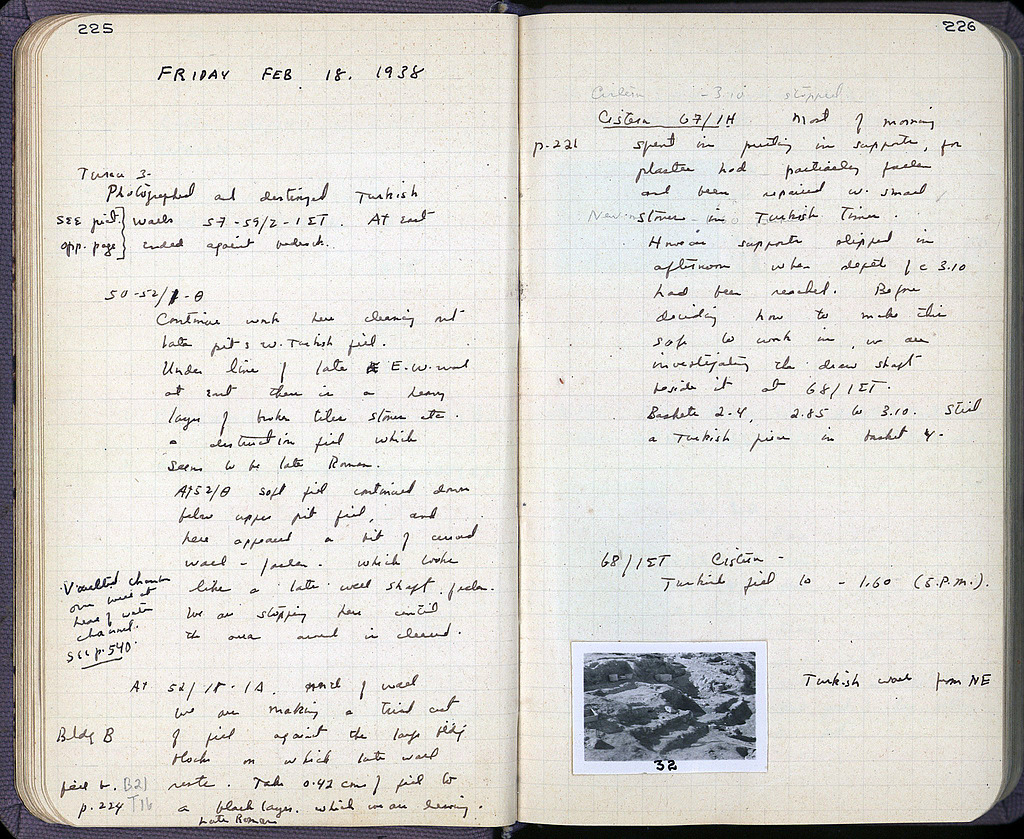 225
FRIDAY FEB 18. 1938
Photographed and destroyed Turkish
SEE pict. opp. page
walls 57-59/2-1ET. At East
ended against bedrock.
50-52/1-Θ
Continue work here cleaning out
late pits w. Turkish fill.
Under line of late E.W. wall
at East there is a heavy
layer of broken tiles stones etc.
a destruction fill which
seems to be late Roman.
At 52/Θ soft fill continued down
below upper pit fill, and
here appeared a bit of curved
wall - fallen. which looks
like a late well shaft, fallen.
We are stopping here until
the area around is cleared.
Vaulted chamber
over well at
head of water
channel.
SEE p. 540
At 52/ 
we are making a trial cut
Bldg B
of fill against the large bldg
blocks on which late wall
rests. Take 0.42 cm of fill to
a black layer. which we are leaving.
Late Roman
fill w. B21
p. 224 T16
226
Cistern -3.10 stopped
Cistern 67/1H Most of morning
p. 221
spent in putting in supports, for
plaster had partially fallen
and been repaired w. small
stones in Turkish times.
However supports slipped in
afternoon when depth of c 3.10
had been reached. Before
deciding how to make this
safe to work in, we are
investigating the draw shaft
beside it at 68/1ET.
Baskets 2-4, 2.85 to 3.10. Still
a Turkish piece in basket 4.
68/1ET Cistern -
Turkish fill to -1.60 (5.P.M.).
Turkish walls from NE
32